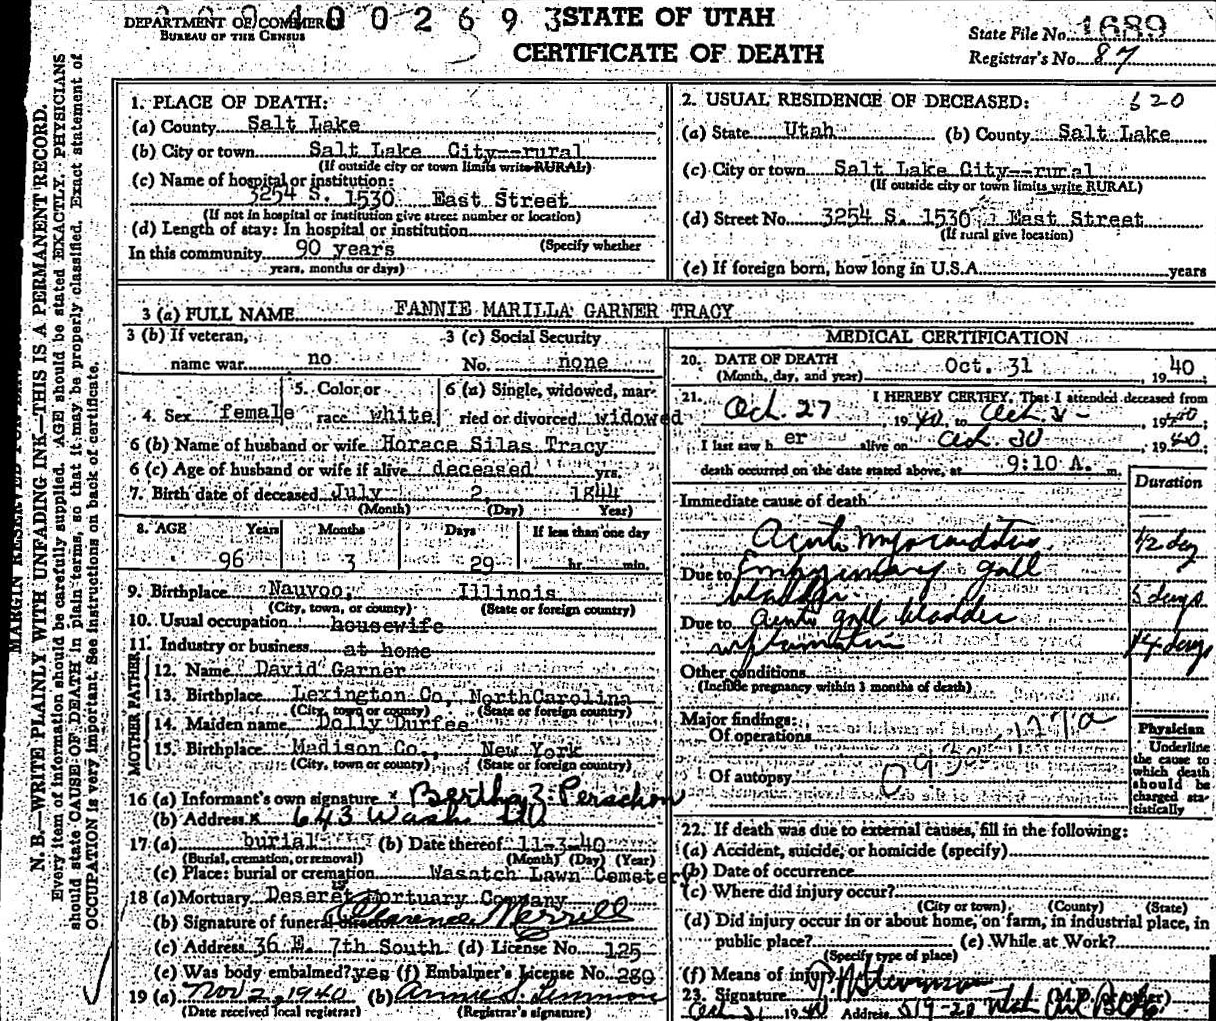 DEPARTMENT OF COMMERCE
BUREAU OF THE CENSUS
0 0 2 6 9 3
STATE OF UTAH
CERTIFICATE OF DEATH
State File No. 1689
Registrar's No. 87
MARGIN RESERVED FOR
N. B.—WRITE PLAINLY WITH UNFADING INK—THIS IS A PERMANENT RECORD.
Every item of information should be carefully supplied. AGE should be stated EXACTLY. PHYSICIANS
should state CAUSE OF DEATH in plain terms, so that it may be properly classified. Exact statement of
OCCUPATION is very important. See instructions on back of certificate.
1. PLACE OF DEATH:
(a) County Salt Lake
(b) City or town Salt Lake City--rural
(If outside city or town limits write RURAL)
(c) Name of hospital or institution:
3254 S. 1530 East Street
(If not in hospital or institution give street number or location)
(d) Length of stay: In hospital or institution
(Specify whether
In this community 90 years
years, months or days)
2. USUAL RESIDENCE OF DECEASED: 620
(a) State Utah (b) County Salt Lake
(c) City or town Salt Lake City--rural
(If outside city or town limits write RURAL)
(d) Street No. 3254 S. 1530 East Street
(If rural give location)
(e) If foreign born, how long in U.S.A. years
3 (a) FULL NAME FANNIE MARILLA GARNER TRACY
3 (b) If veteran,
name war no
3 (c) Social Security
No. none
4. Sex female
5. Color or
race white
6 (a) Single, widowed, mar-
ried or divorced widowed
6 (b) Name of husband or wife Horace Silas Tracy
6 (c) Age of husband or wife if alive deceased yrs.
7. Birth date of deceased July 2, 1844
(Month) (Day) Year)
8. AGE Years Months Days If less than one day
96 3 29 hr. min.
9. Birthplace Nauvoo, Illinois
(City, town, or county) (State or foreign country)
10. Usual occupation housewife
11. Industry or business at home
FATHER
12. Name David Garner
13. Birthplace Lexington Co, North Carolina
(City, town or county) (State or foreign country)
MOTHER
14. Maiden name Dolly Durfee
15. Birthplace Madison Co., New York
(City, town or county) (State or foreign country)
16 (a) Informant's own signature x Bertha Z. Perschon
(b) Address x 643 Wash.
17 (a) burial (b) Date thereof 11-3-40
(Burial, cremation, or removal) (Month) (Day) (Year)
(c) Place: burial or cremation Wasatch Lawn Cemetery
18 (a) Mortuary Deseret Mortuary Company
(b) Signature of funeral director Clarence Merrill
(c) Address 36 E. 7th South (d) License No. 125
(e) Was body embalmed? yes (f) Embalmer's License No. 280
19 (a) Nov 2, 1940 (b) Annie S. Lemmon
(Date received local registrar) (Registrar's signature)
MEDICAL CERTIFICATION
20. DATE OF DEATH Oct. 31, 1940
(Month, day, and year)
21. I HEREBY CERTIFY, That I attended deceased from
Oct 27 1940, to Oct 1940;
I last saw h er alive on Oct. 30, 1940;
death occurred on the date stated above, at 9:10 A. m.
Duration
Immediate cause of death
Acute Myocarditis 1/2 day
Due to gall
bladder 5 days
Due to Acute gall bladder
inflamation 14 days
Other conditions
(Include pregnancy within 3 months of death)
Major findings:
Of operations
127a
Of autopsy
Physician
Underline
the cause to
which death
should be
charged sta-
tistically
22. If death was due to external causes, fill in the following:
(a) Accident, suicide, or homicide (specify)
(b) Date of occurrence
(c) Where did injury occur?
(City or town) (County) (State)
(d) Did injury occur in or about home, on farm, in industrial place, in
public place? (e) While at Work?
(Specify type of place)
(f) Means of injury
23. Signature (M.D. or other)
1940 Address